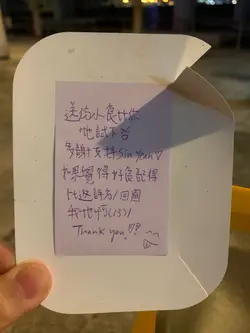 送份小食比你
地試下
多謝支持Sin Yeah♡
如果覺得好食記得
比返評分/回圖
我地
Thank you!♡